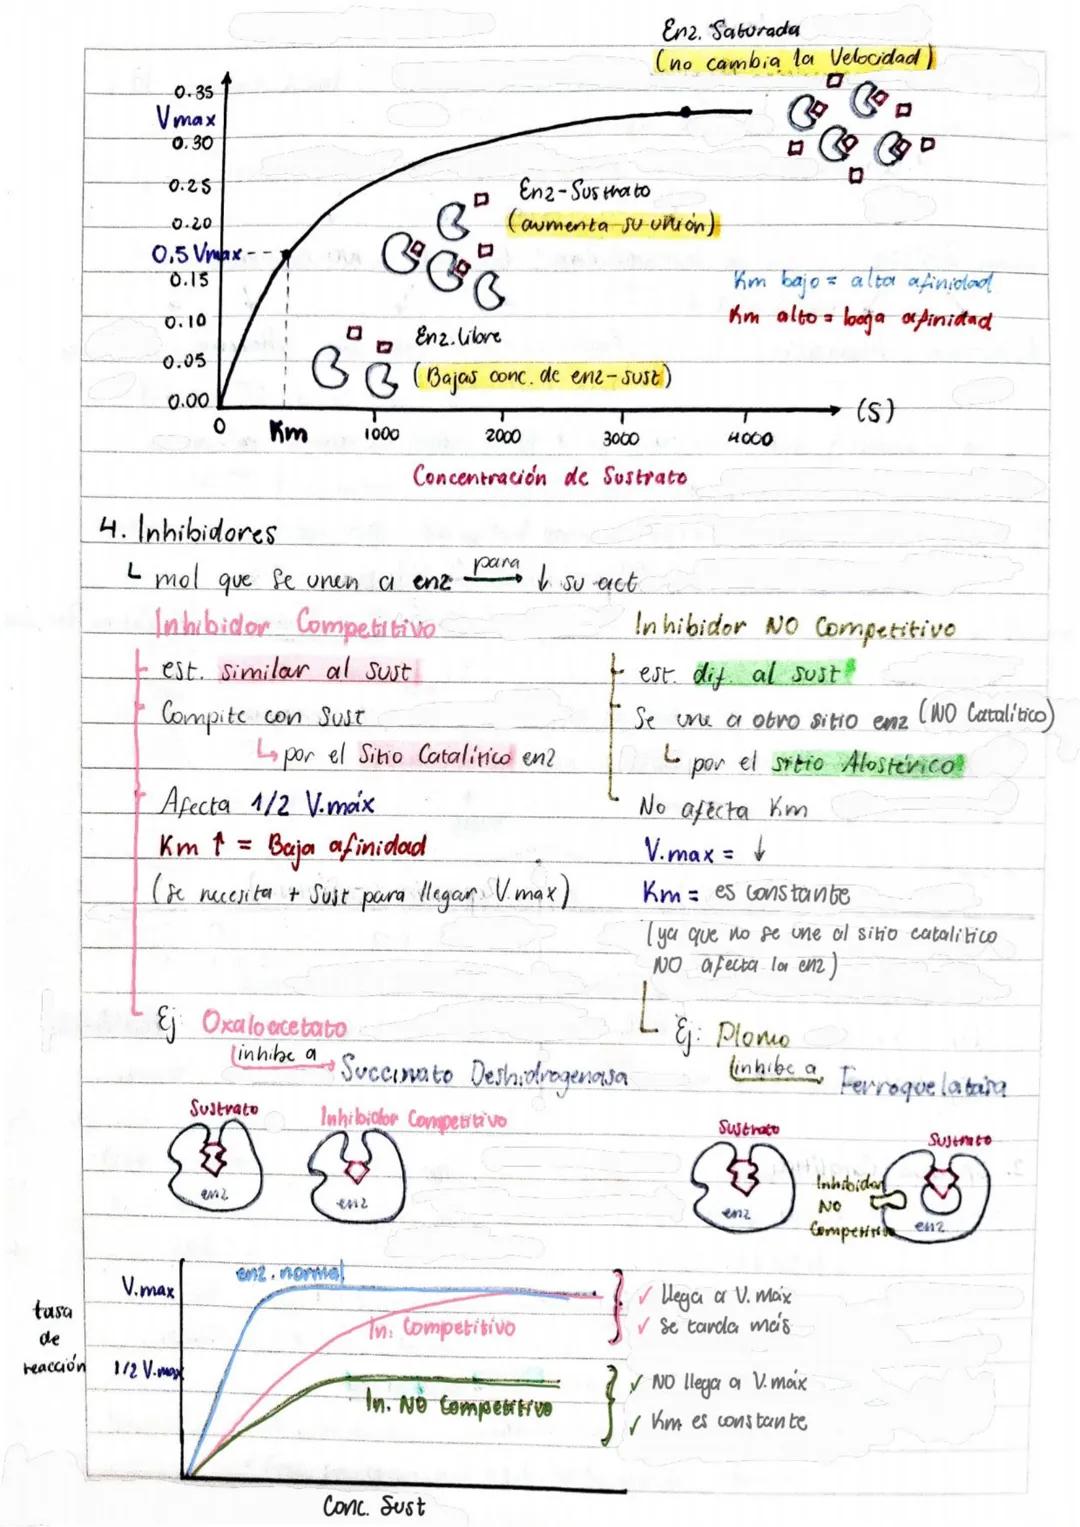 Enz. Saturada
(no cambia la Velocidad)
0.35
Vmax
0.30
0.25
0.20
0,5 Vmax
0.15
0.10
0.05
0.00
Enz-Sustrato
(aumenta su unión)
Km bajo = alta afinidad
Km alto = baja afinidad
Enz. Libre
(Bajas conc. de enz-sust)
0 Km 1000 2000 3000 4000 (S)
Concentración de Sustrato
4. Inhibidores
mol que se unen a enz para → ↓ su act
Inhibidor Competitivo
est. similar al sust
Compite con Sust
↳ por el Sitio Catalítico enz
Afecta 1/2 V.máx
Km ↑ = Baja afinidad
(se necesita + Sust para llegar V.max)
Ej Oxaloacetato
inhibe a → Succinato Deshidrogenasa
Sustrato
enz
Inhibidor Competitivo
enz
Inhibidor NO Competitivo
est. dif. al sust
Se une a otro sitio enz (NO Catalítico)
↳ por el sitio Alostérico
No afecta Km
V.max = ↓
Km = es constante
(ya que no se une al sitio catalitico
NO afecta la enz)
Ej: Plomo
inhibe a → Ferroquelatasa
Sustrato
enz
Inhibidor
NO
Competitivo
Sustrato
enz
tasa
de
reacción
V.max
1/2 V.max
enz. normal
In. Competitivo
In. NO Competitivo
Conc. Sust
✓ llega a V. máx
✓ Se tarda más
✓ NO llega a V. máx
✓ Km es constante